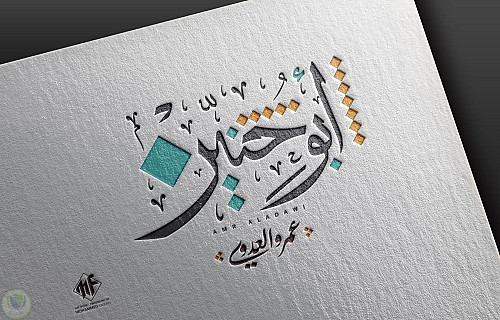 أبو حنين
AMR ALADAWI
عمرو العدوي